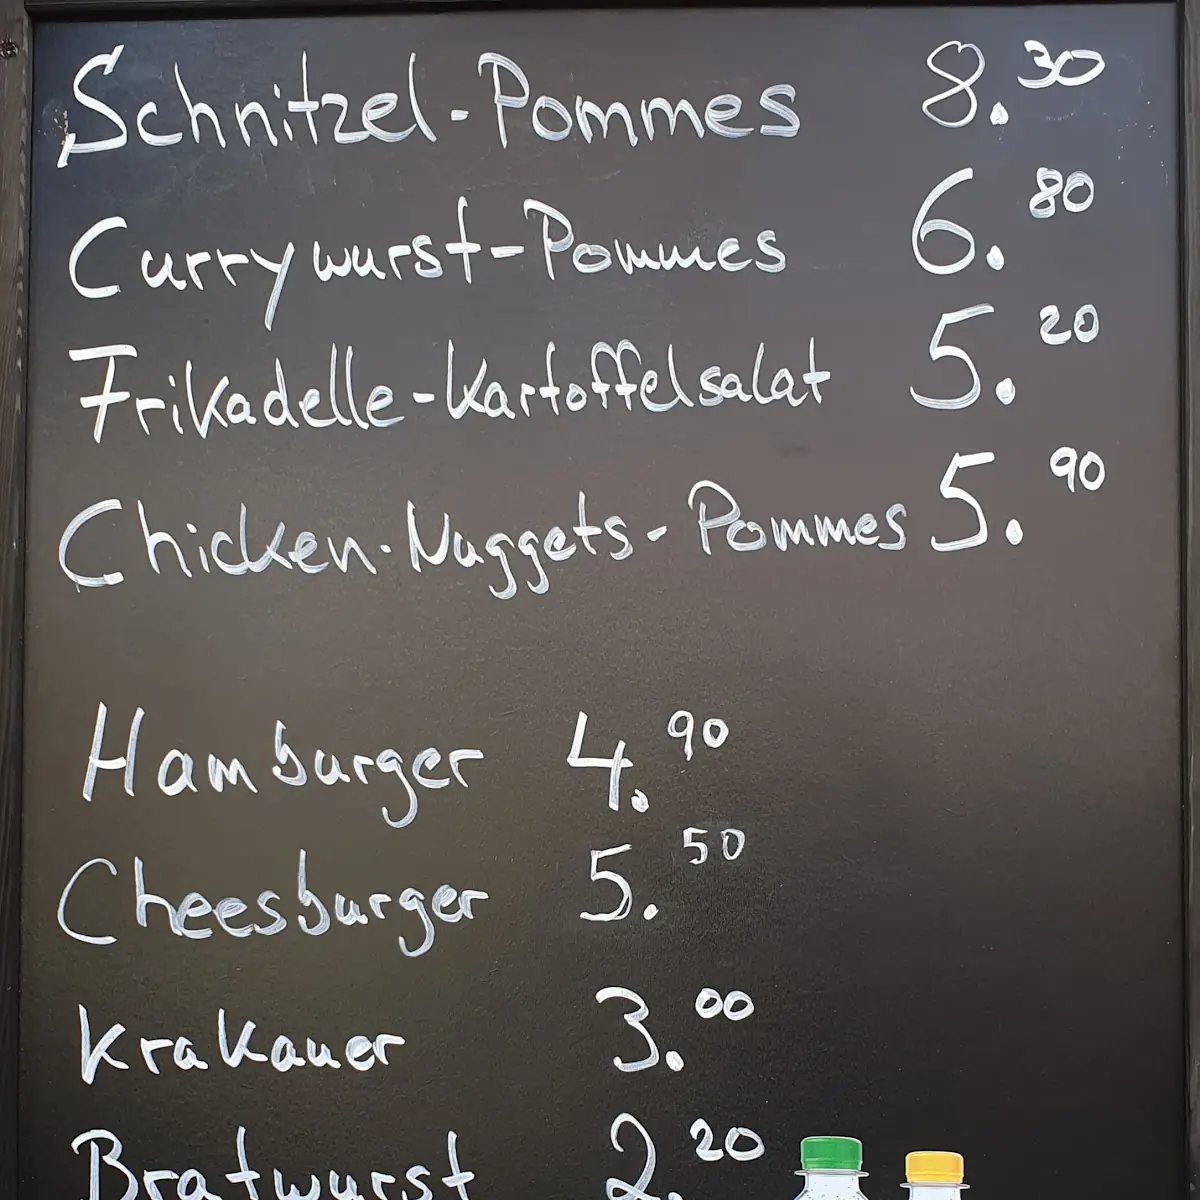 Schnitzel-Pommes 8.30
Currywurst-Pommes 6.80
Frikadelle-Kartoffelsalat 5.20
Chicken-Nuggets-Pommes 5.90
Hamburger 4.90
Cheesburger 5.50
Krakauer 3.00
Bratwurst 2.20